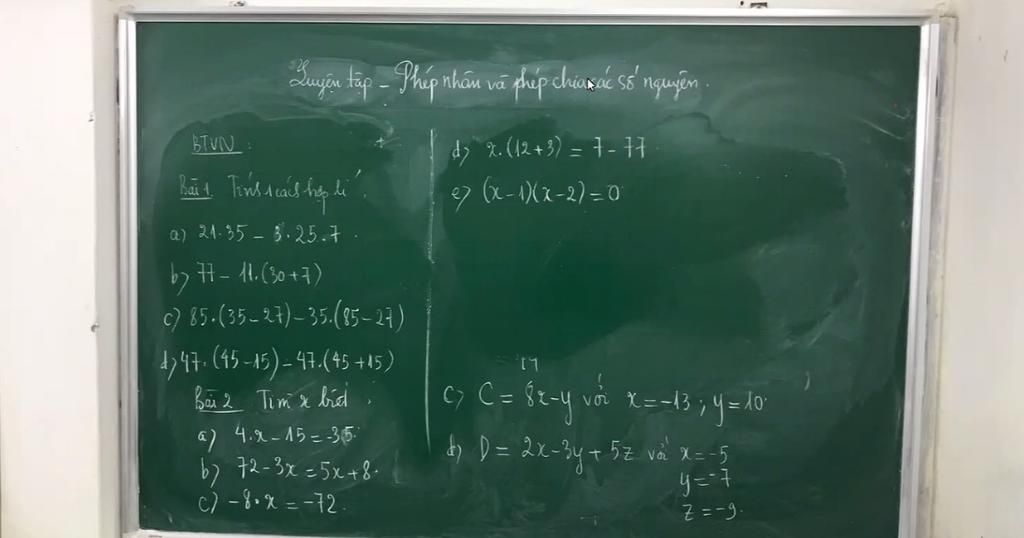 Luyện tập - Phép nhân và phép chia các số nguyên.
BTVN:
Bài 1. Tính 1 cách hợp lí.
a) 21.35 - 3.25.7.
b) 77 - 11.(30+7)
c) 85.(35-27)-35.(85-27)
d) 47.(45-15)-47.(45+15)
Bài 2 Tìm x biết.
a) 4.x-15=-35.
b) 72-3x=5x+8.
c) -8.x=-72.
d) x.(12+3)=7-77.
e) (x-1)(x-2)=0
C) C = 8x-y với x=-13; y=10.
d) D = 2x-3y+5z với x=-5
y=-7
z=-9.